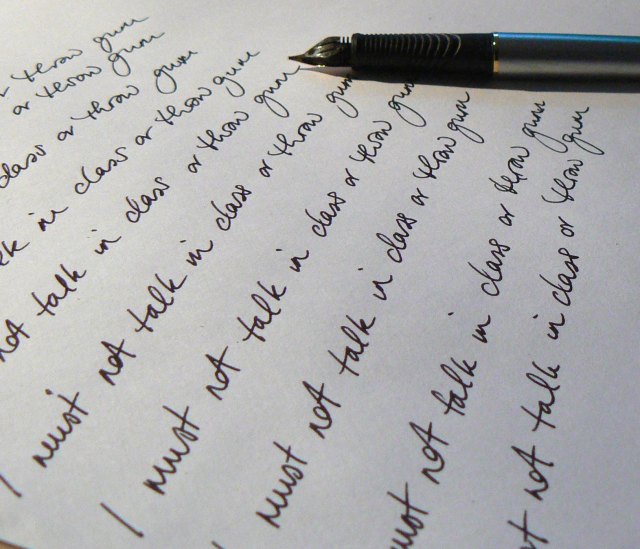 throw gum
or throw gum
class or throw gum
lk in class or throw gum
not talk in class or throw gum
I must not talk in class or throw gum
I must not talk in class or throw gum
I must not talk in class or throw gum
must not talk in class or throw gum
st not talk in class or throw gum